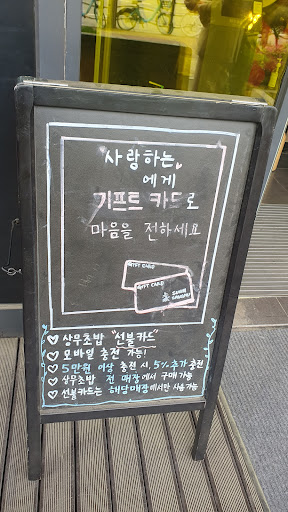 사랑하는
에게
기프트 카드로
마음을 전하세요
GIFT CARD
GIFT CARD
상무초밥 "선불카드"
모바일 충전 가능!
5만원 이상 충전 시, 5% 추가 충전
상무초밥 전 매장에서 구매 가능
선불카드는 해당매장에서만 사용 가능